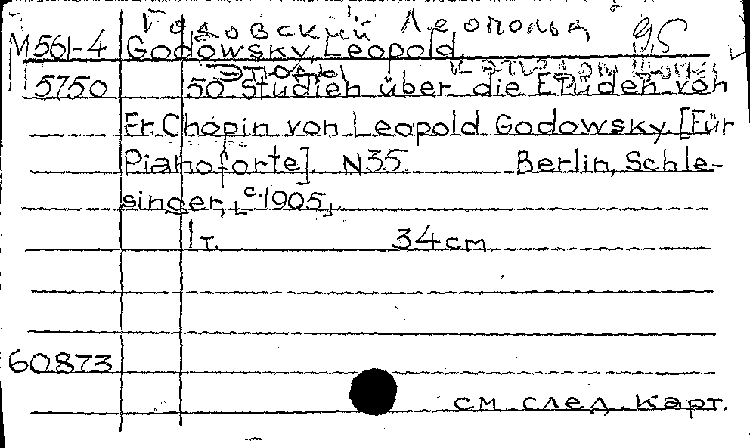 Годовский Леопольд 95
M561-4 Godowsky, Leopold
Этюды
5750 50 Studien über die Etüden von
Fr. Chopin von Leopold Godowsky. [Für
Pianoforte]. N35. Berlin, Schle-
singer, [c.1905].
1 т. 34 cm
60873
см. след. карт.